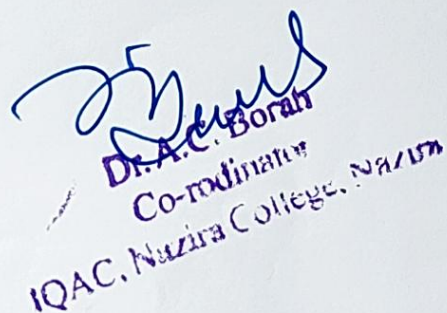 Dr. A.C. Borah
Co-rodinator
IQAC, Nazira College, Nazira